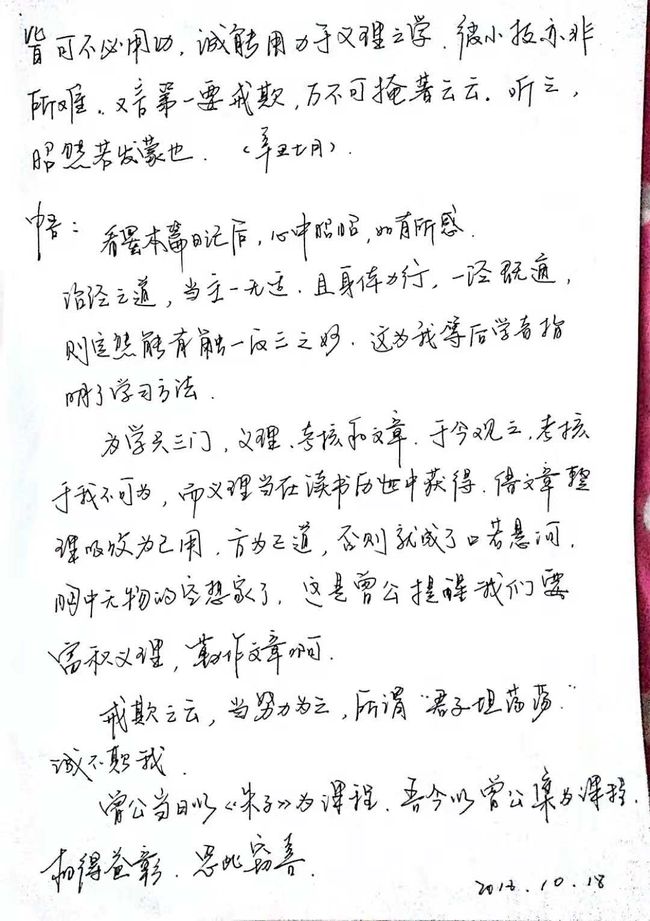 皆可不必用功，诚能用力于义理之学，彼小技亦非
所难。又言第一要戒欺，万不可掩著云云。听之，
昭然若发蒙也。（辛丑七月）.
看罢本篇日记后，心中昭昭，如有所感.
治经之道，当主一无适，且身体力行，一经既通，
则定然能有触一反三之妙。这为我等后学者指
明了学习方法.
为学只三门，义理、考核和文章。于今观之，考核
于我不可为，而义理当在读书历世中获得。借文章整
理吸收为己用，方为正道，否则就成了口若悬河，
胸中无物的空想家了。这是曾公提醒我们要
富积义理，勤作文章啊.
戒欺之云，当努力为之，所谓“君子坦荡荡”
诚不欺我.
曾公当日以《朱子》为课程，吾今以曾公集为课程，
相得益彰。思此窃喜.
10.18